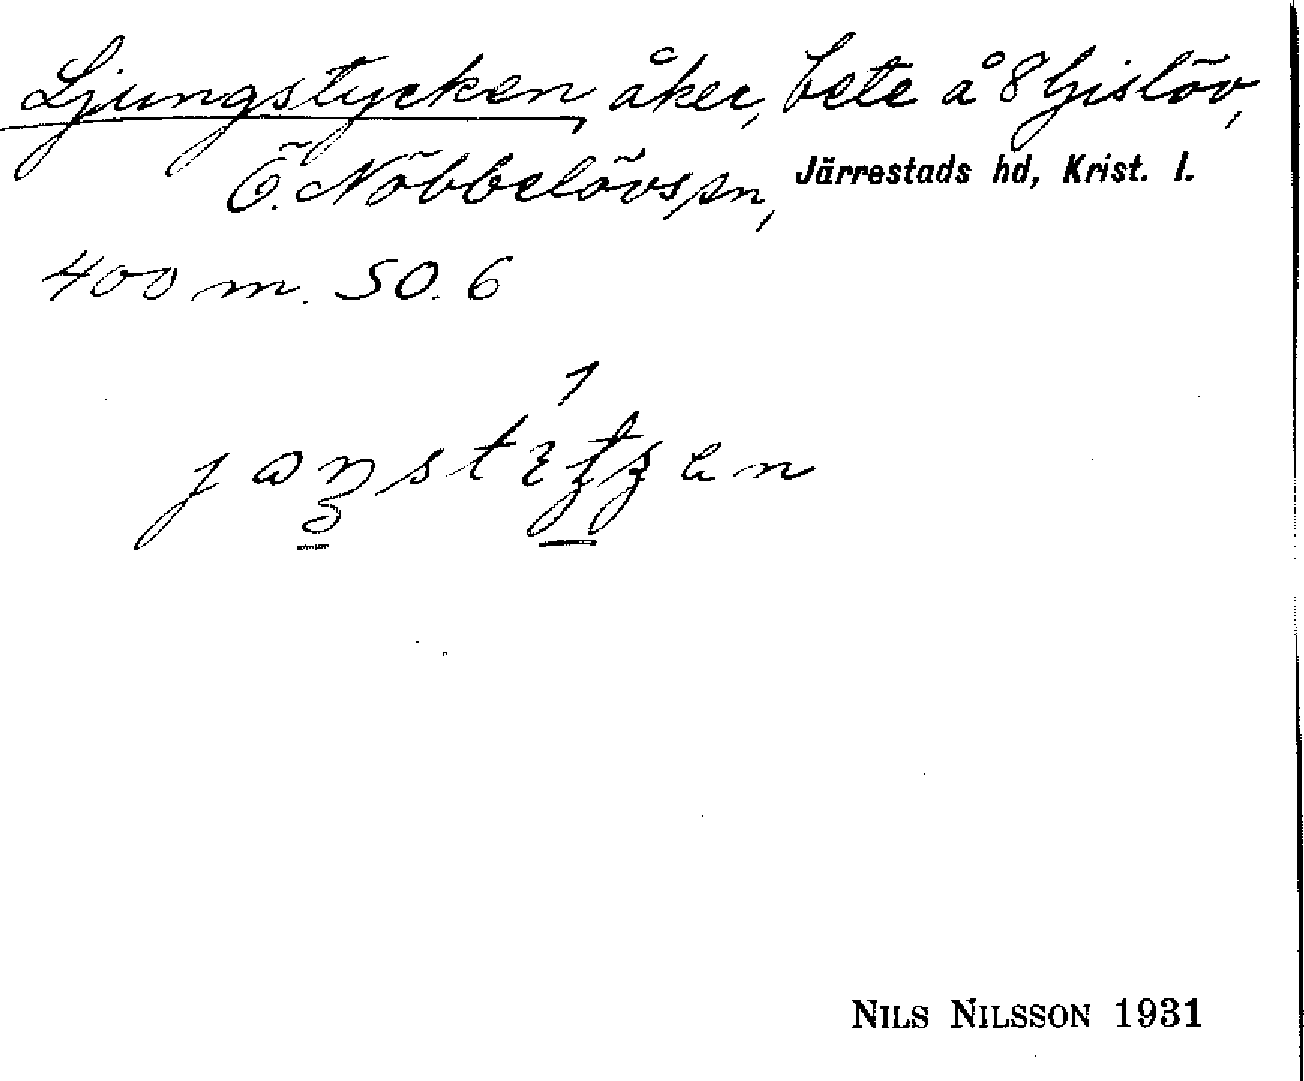 Ljungstycken, åker, bete å 8 Gislöv,
Ö. Nöbbelövs sn, Järrestads hd, Krist. l.
400 m. SO. 6
NILS NILSSON 1931